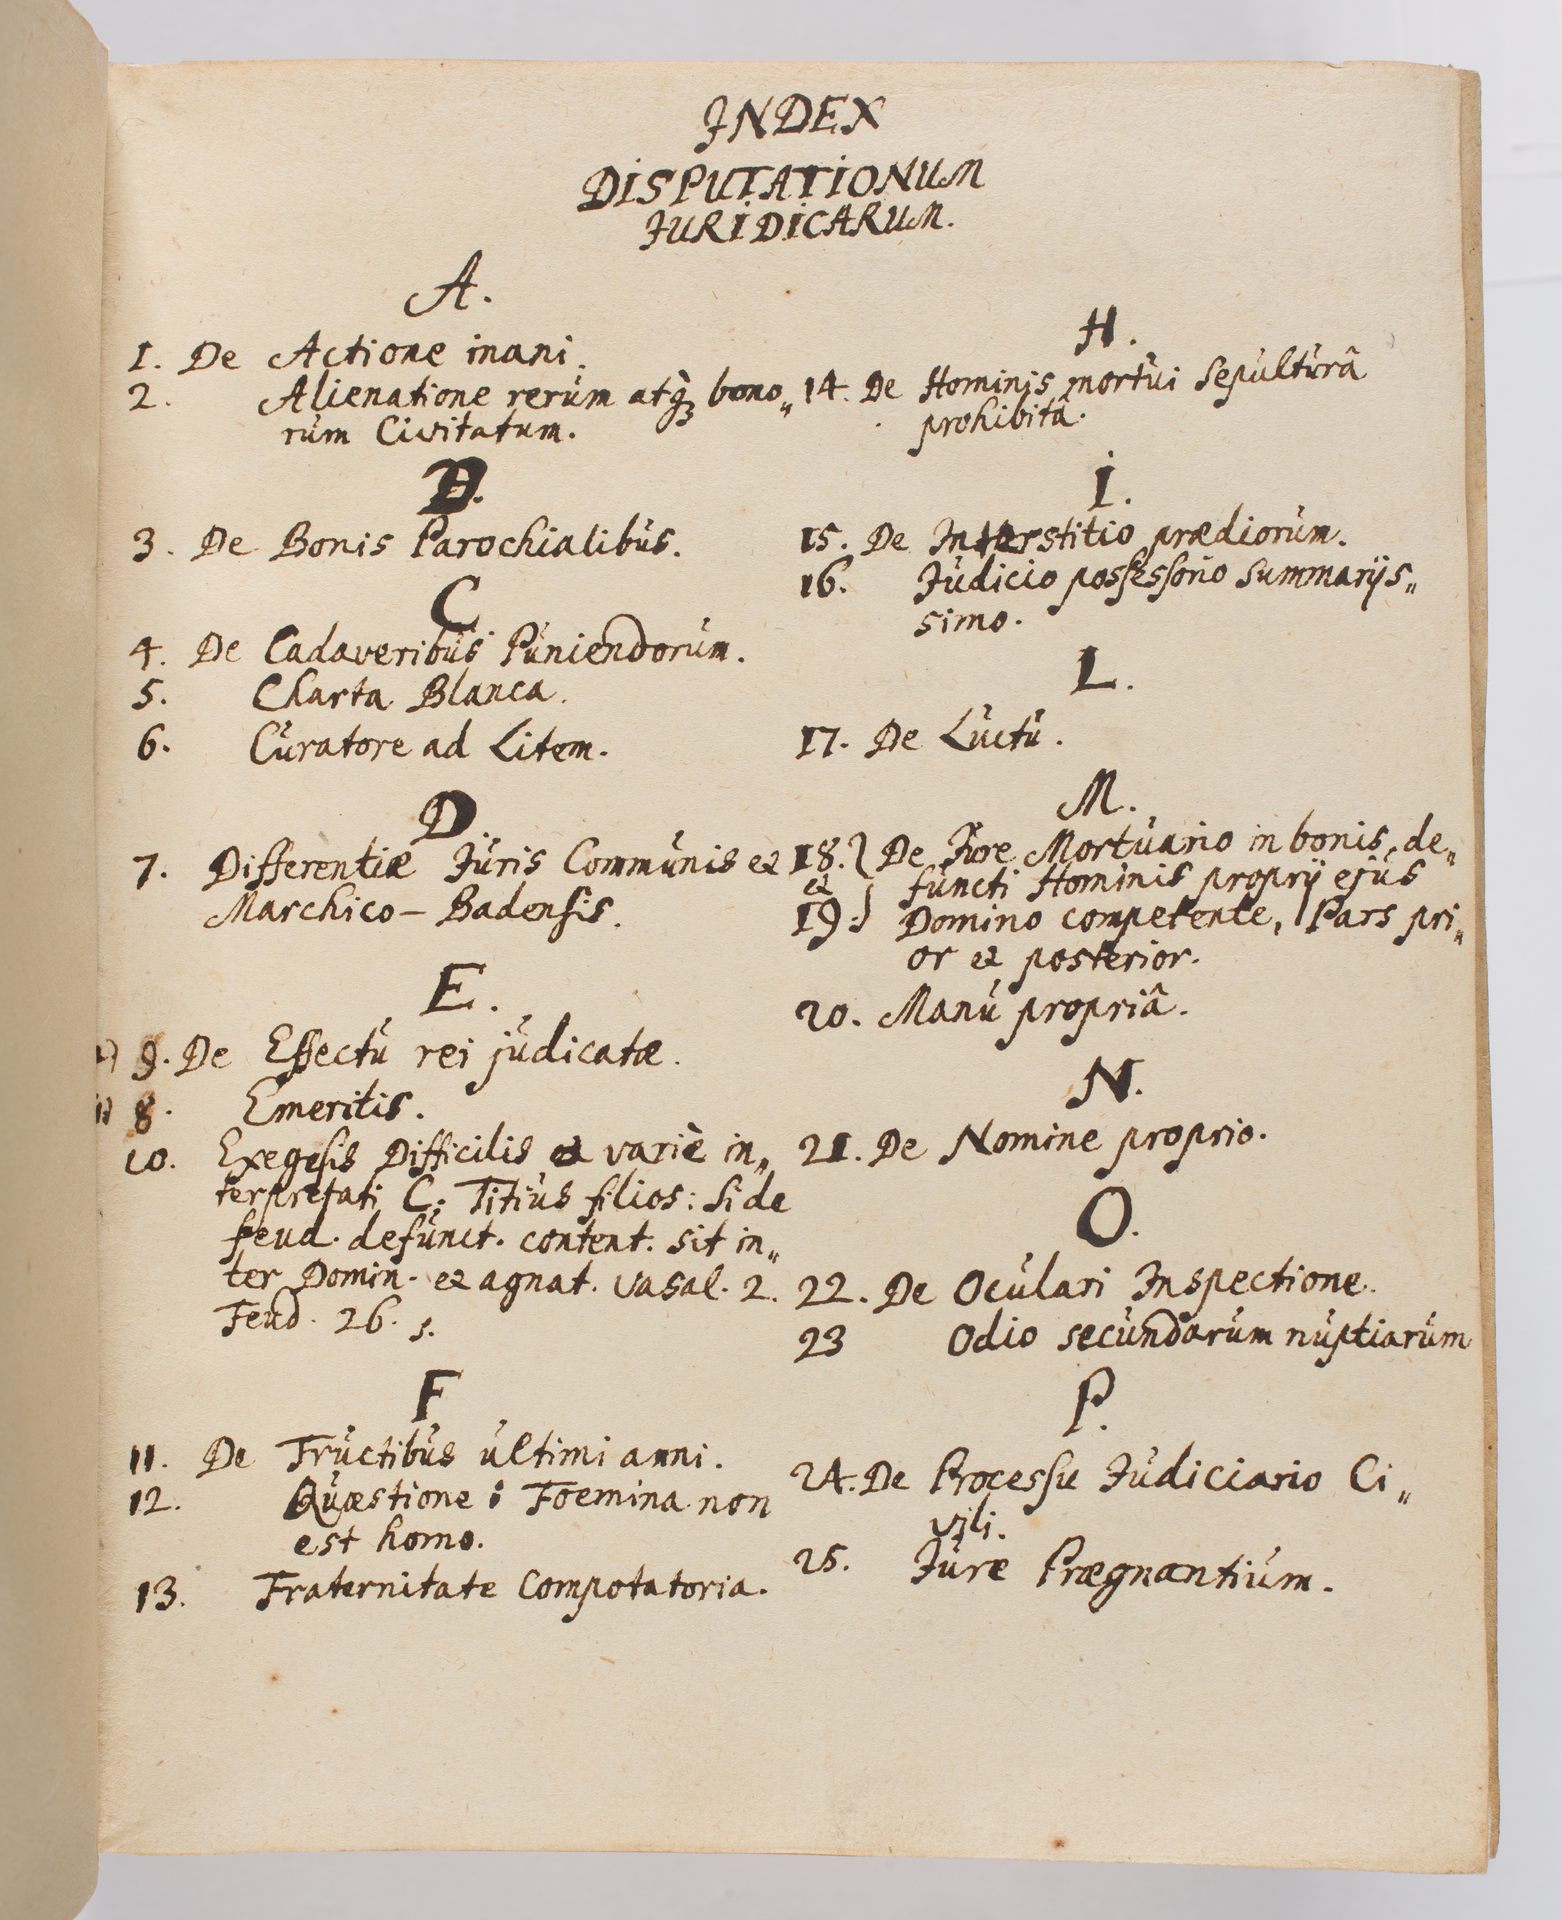 INDEX
DISPUTATIONUM
JURIDICARUM.
A.
1. De Actione inani.
2. Alienatione rerùm atq̀ʒ bono„
rùm Civitatum.
B.
3. De Bonis Parochialibùs.
C
4. De Cadaveribùs Pùniendorùm.
5. Charta Blanca.
6. Cùratore ad Litem.
D
7. Differentiæ Jùris Commùnis et
Marchico-Badensis.
E.
9. De Effectù rei jùdicatæ.
8. Emeritis.
10. Exegesis Difficilis et variè in„
terpretati C: Titiùs filios: Si de
feud. defùnct. content. sit in„
ter Domin. et agnat. vasal. 2.
Feud. 26. s.
F
11. De Frùctibùs ùltimi anni.
12. Qùæstione: Foemina non
est homo.
13. Fraternitate Compotatoria.
H.
14. De Hominis mortùi Sepùltùrâ
prohibitâ.
I.
15. De Interstitio prædiorùm.
16. Jùdicio possessorio Summarijs„
simo.
L.
17. De Lùctù.
M.
18. } De Jùre Mortùario in bonis, de„
et fùncti Hominis proprij ejùs
19. } Domino competente, Pars pri„
or et posterior.
20. Manù propriâ.
N.
21. De Nomine proprio.
O.
22. De Ocùlari Inspectione.
23 Odio secùndarùm nùptiarùm
P.
24. De Processu Jùdiciario Ci„
vili.
25. Jùre Prægnantiùm.